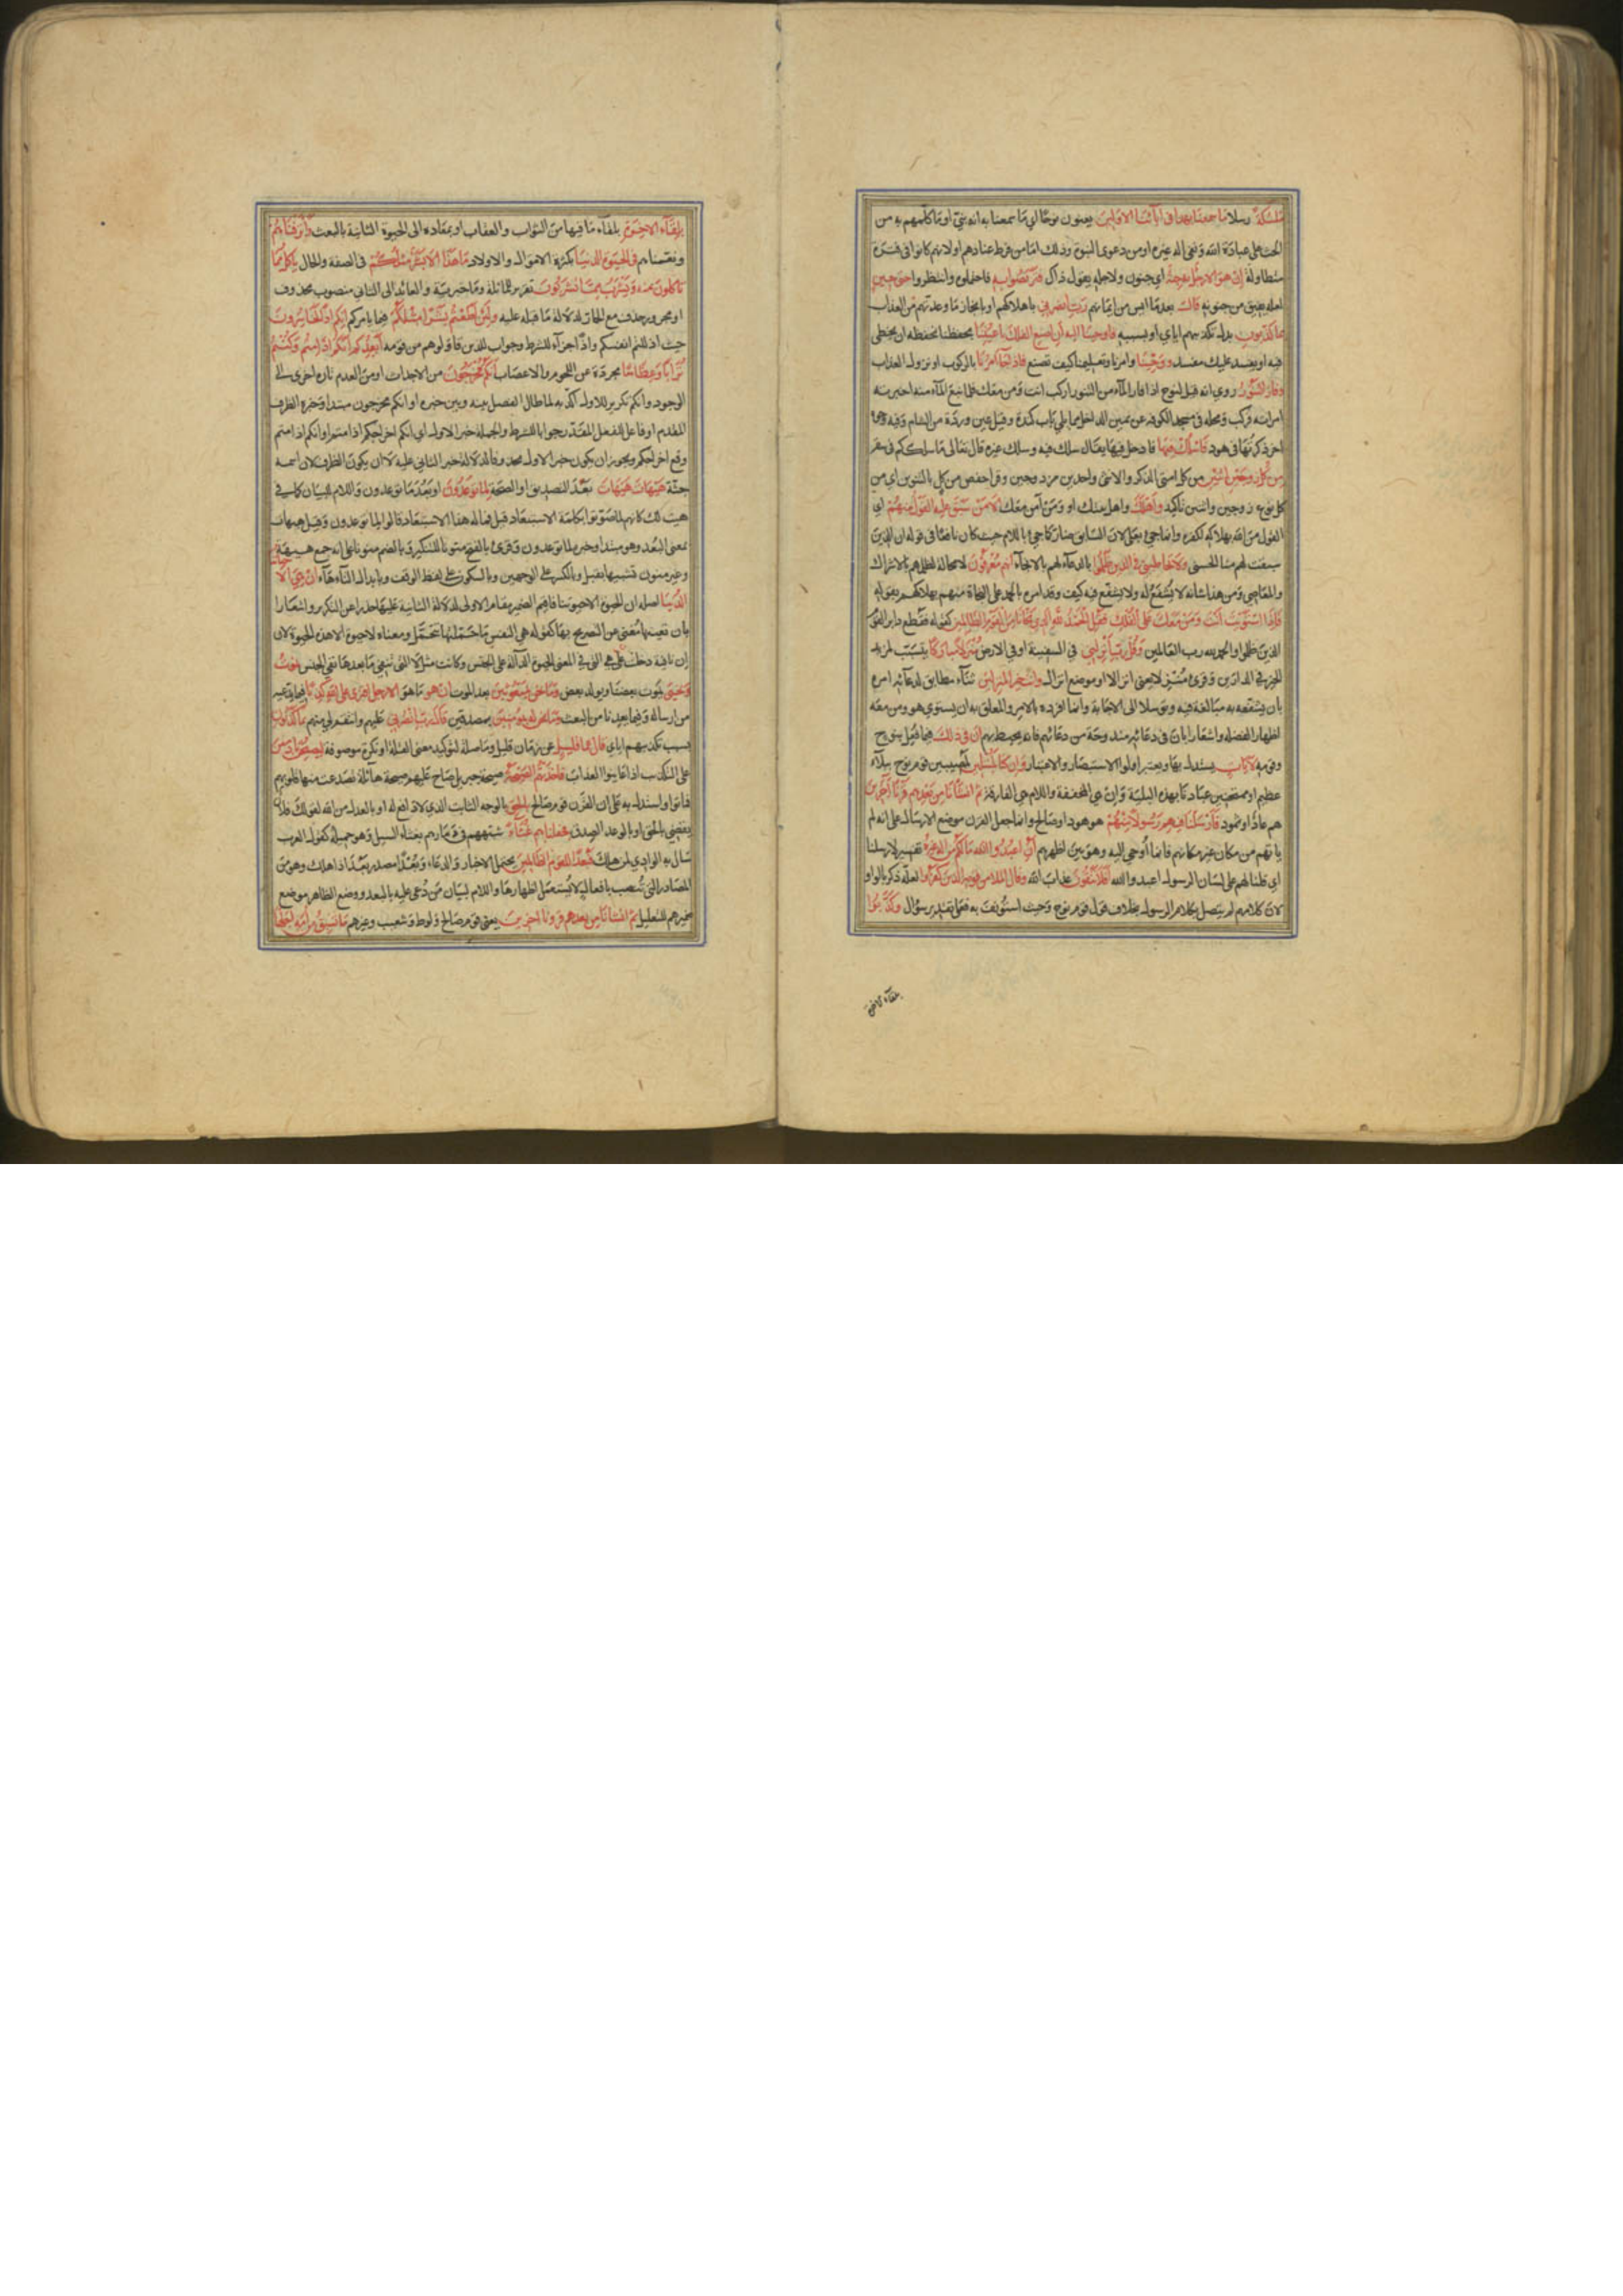 ملئكة رسلا ما سمعنا بهذا فى آبائنا الاولين يعنون نوحا اي ما سمعنا به انه نبي او ما كلمهم به من
الحث على عبادة الله ونفى اله غيره او من دعوى النبوة وذلك اما من فرط عنادهم او لانهم كانوا فى فترة
متطاولة إن هو الا رجل به جنة اي جنون ولاجله يقول ذلك فتربصوا به فاحتملوه وانتظروا حتى حين
لعله يفيق من جنونه قال بعد ما ايس من ايمانهم رب انصرني باهلاكهم او بانجاز ما وعدتهم من العذاب
بما كذبون بدل تكذيبهم اياي او بسببه فاوحينا اليه أن اصنع الفلك باعيننا بحفظنا نحفظه ان يخطى
فيه او يفسد عليك مفسد ووحينا وامرنا وتعليمنا كيف تصنع فاذا جآء امرنا بالركوب او نزول العذاب
وفار التنور روي انه قيل لنوح اذا فار المآء من التنور اركب انت ومن معك فلما نبع المآء منه اخبرته
امراته فركب ومحله فى مسجد الكوفة عن يمين الداخل مما يلي باب كندة وقيل عين وردة من الشام وفيه وجوه
اخر ذكرتها فى هود فاسلك فيها فادخل فيها يقال سلك فيه وسلك غيره قال تعالى ما سلككم فى سقر
من كل زوجين اثنين من كل امتى الذكر والانثى واحدين مزدوجين وقرا حفص من كل بالتنوين اي من
كل نوع زوجين واثنين تاكيد وأهلك واهل بيتك او ومن آمن معك الا من سبق عليه القول منهم اي
القول من الله بهلاكه لكفره وانما جيء بعلى لان السابق ضار كما جيء باللام حيث كان نافعا فى قوله ان الذين
سبقت لهم منا الحسنى ولا تخاطبني في الذين ظلموا بالدعآء لهم بالانجآء انهم مغرقون لا محالة لظلمهم بالاشراك
والمعاصي ومن هذا شانه لا يشفع له ولا يشفع فيه كيف وقد امره بالحمد على النجاة منهم بهلاكهم بقوله
فاذا استويت انت ومن معك على الفلك فقل الحمد لله الذي نجانا من القوم الظالمين كقوله فقطع دابر القوم
الذين ظلموا والحمد لله رب العالمين وقل رب أنزلني في السفينة او في الارض منزلا مباركا يتسبب لمزيد
الخير في الدارين وقرئ منزلا بمعنى انزالا او موضع انزال وانت خير المنزلين ثنآء مطابق لدعآئه امره
بان يشفعه به مبالغة فيه وتوسلا الى الاجابة وانما افرده بالامر والمعلق به ان يستوي هو ومن معه
اظهارا لفضله واشعارا بان فى دعائه مندوحة عن دعائهم فانه يحيط بهم ان فى ذلك فيما فعل بنوح
وقومه لآيات يستدل بها ويعتبر اولوا الاستبصار والاعتبار وإن كنا لمبتلين لمصيبين قوم نوح ببلآء
عظيم او ممتحنين عبادنا بهذه البلية وان هي المخففة واللام هي الفارقة ثم انشأنا من بعدهم قرنا آخرين
هم عاد او ثمود فأرسلنا فيهم رسولا منهم هو هود او صالح وانما جعل القرن موضع الارسال على انه لم
ياتهم من مكان غير مكانهم فانما أوحي اليه وهو بين اظهرهم أن اعبدوا الله ما لكم من اله غيره تفسير لارسلنا
اي قلنا لهم على لسان الرسول اعبدوا الله أفلا تتقون عذاب الله وقال الملا من قومه الذين كفروا لعله ذكر بالواو
لان كلامهم لم يتصل بكلام الرسول بخلاف قول قوم نوح وحيث استؤنف به فعلى تقدير سؤال وكذبوا
بلقآء الاخرة
بلقآء الاخرة بلقآء ما فيها من الثواب والعقاب او بمعادهم الى الحيوة الثانية بالبعث وأترفناهم
ونعمناهم فى الحيوة الدنيا بكثرة الاموال والاولاد ما هذا الا بشر مثلكم فى الصفة والحال ياكل مما
تاكلون منه ويشرب مما تشربون تقرير للمماثلة وما خبرية والعائد الى الثاني منصوب محذوف
او مجرور حذف مع الجار لدلالة ما قبله عليه ولئن اطعتم بشرا مثلكم فيما يامركم إنكم اذا لخاسرون
حيث اذللتم انفسكم واذا جزآء للشرط وجواب للذين قاولوهم من قومه أيعدكم انكم اذا متم وكنتم
ترابا وعظاما مجردة عن اللحوم والاعصاب أنكم مخرجون من الاجداث او من العدم تارة اخرى الى
الوجود وانكم تكرير للاول اكد به لما طال الفصل بينه وبين خبره او انكم مخرجون مبتدا وخبره الظرف
المقدم او فاعل للفعل المقدر جوابا للشرط والجملة خبر الاول اي انكم اخراجكم اذا متم او انكم اذا متم
وقع اخراجكم ويجوز ان يكون خبر الاول محذوفا لدلالة خبر الثاني عليه لا ان يكون الظرف لان اسمه
جثة هيهات هيهات بعد التصديق او الصحة لما توعدون او بعد ما توعدون واللام للبيان كما في
هيت لك كانهم لما صوتوا بكلمة الاستبعاد قيل فما له هذا الاستبعاد قالوا لما توعدون وقيل هيهات
بمعنى البعد وهو مبتدا وخبره لما توعدون وقرئ بالفتح منونا للتنكير وبالضم منونا على انه جمع هيهة
وغير منون تشبيها بقبل وبالكسر على الوجهين وبالسكون على لفظ الوقف وبابدال التآء هآء إن هي الا حياتنا
الدنيا اصله ان الحيوة الا حيوتنا فاقيم الضمير مقام الاولى لدلالة الثانية عليها حذرا عن التكرير واشعارا
بان تعينها مغني عن التصريح بها كقوله هي النفس ما حملتها تتحمل ومعناه لا حيوة الا هذه الحيوة لان
إن نافية دخلت على هي التى في المعنى الحيوة الدالة على الجنس وكانت مثل لا التى تنفي ما بعدها نفي الجنس نموت
ونحيى يموت بعضنا ويولد بعض وما نحن بمبعوثين بعد الموت ان هو ما هو الا رجل افترى على الله كذبا فيما يدعيه
من ارساله وفيما يعدنا من البعث وما نحن له بمؤمنين بمصدقين قال رب انصرني عليهم وانتقم لي منهم بما كذبون
بسبب تكذيبهم اياي قال عما قليل عن زمان قليل وما صلة لتوكيد معنى القلة او نكرة موصوفة ليصبحن نادمين
على التكذيب اذا عاينوا العذاب فاخذتهم الصيحة صيحة جبريل صاح عليهم صيحة هآئلة تصدعت منها قلوبهم
فماتوا واستدل به على ان القرن قوم صالح بالحق بالوجه الثابت الذي لا دافع له او بالعدل من الله كقولك فلان
يقضي بالحق او بالوعد الصدق فجعلناهم غثآء شبههم فى دمارهم بغثاء السيل وهو حميله كقول العرب
سال به الوادي لمن هلك فبعدا للقوم الظالمين يحتمل الاخبار والدعاء وبعدا مصدر بعد اذا هلك وهو من
المصادر التي تنصب بافعال لا يستعمل اظهارها واللام لبيان من دعى عليه بالبعد ووضع الظاهر موضع
ضميرهم للتعليل ثم انشانا من بعدهم قرونا اخرين يعني قوم صالح ولوط وشعيب وغيرهم ما تسبق من امة اجلها